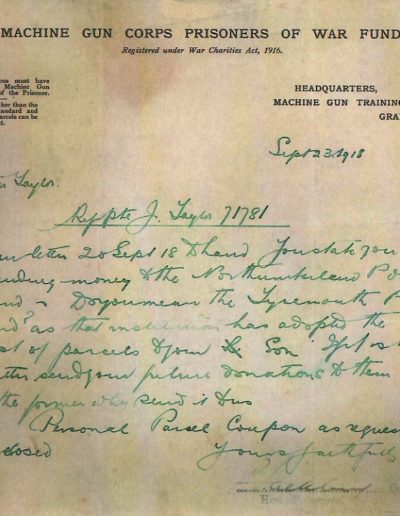 MACHINE GUN CORPS PRISONERS OF WAR FUND
Registered under War Charities Act, 1916.
ous must have
Machine Gun
of the Prisoner.
ther than the
tandard and
arcels can be
t.
HEADQUARTERS,
MACHINE GUN TRAINING
GRA
Sept 23 1918
Taylor.
Re Pte J. Taylor 71781
letter 20 Sept 18 to hand You state you
money to the Northumberland P
Do you mean the Tynemouth P
as that institution has adopted the
of parcels to your Son
send your future donations to them
the former who send it to us
Personal Parcel Coupon as reques
closed
Yours faithfully